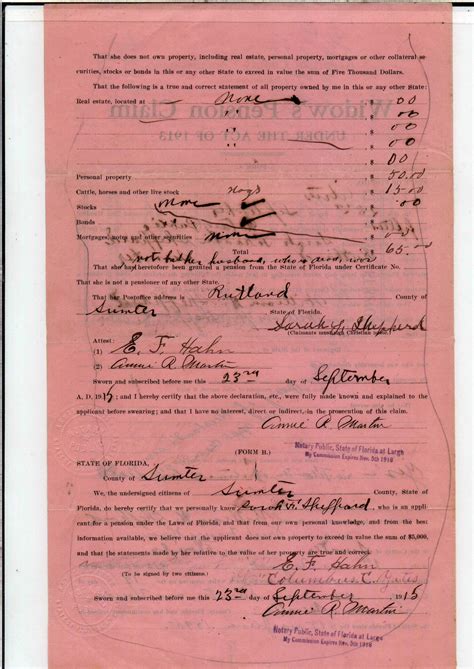 That she does not own property, including real estate, personal property, mortgages or other collateral se-
curities, stocks or bonds in this or any other State to exceed in value the sum of Five Thousand Dollars.
That the following is a true and correct statement of all property owned by me in this or any other State:
Real estate, located at None $ 00
" $ 00
" $ 00
$ 00
Personal property $ 50.00
Cattle, horses and other live stock Hogs $ 15.00
Stocks None $ .00
Bonds $
Mortgages, notes and other securities None $
Total $ 65.00
not but her husband, who is dead, was
That she has heretofore been granted a pension from the State of Florida under Certificate No.
That she is not a pensioner of any other State.
That her Postoffice address is Rutland County of
Sumter State of Florida.
Sarah F. Shepperd
(Claimants must sign Christian name.)
Attest:
(1) E. F. Hahn
(2) Annie R. Martin
Sworn and subscribed before me this 23rd day of September
A. D. 1915; and I hereby certify that the above declaration, etc., were fully made known and explained to the
applicant before swearing; and that I have no interest, direct or indirect, in the prosecution of this claim.
Annie R. Martin
Notary Public, State of Florida at Large
My Commission Expires Nov. 5th 1918
(FORM B.)
STATE OF FLORIDA,
County of Sumter
We, the undersigned citizens of Sumter County, State of
Florida, do hereby certify that we personally know Sarah F. Sheppard, who is an appli-
cant for a pension under the Laws of Florida, and that from our own personal knowledge, and from the best
information available, we believe that the applicant does not own property to exceed in value the sum of $5,000,
and that the statements made by her relative to the value of her property are true and correct.
E. F. Hahn
(To be signed by two citizens.) Columbus C.
Sworn and subscribed before me this 23rd day of September 1915
Annie R. Martin
Notary Public, State of Florida at Large
My Commission Expires Nov. 5th 1918